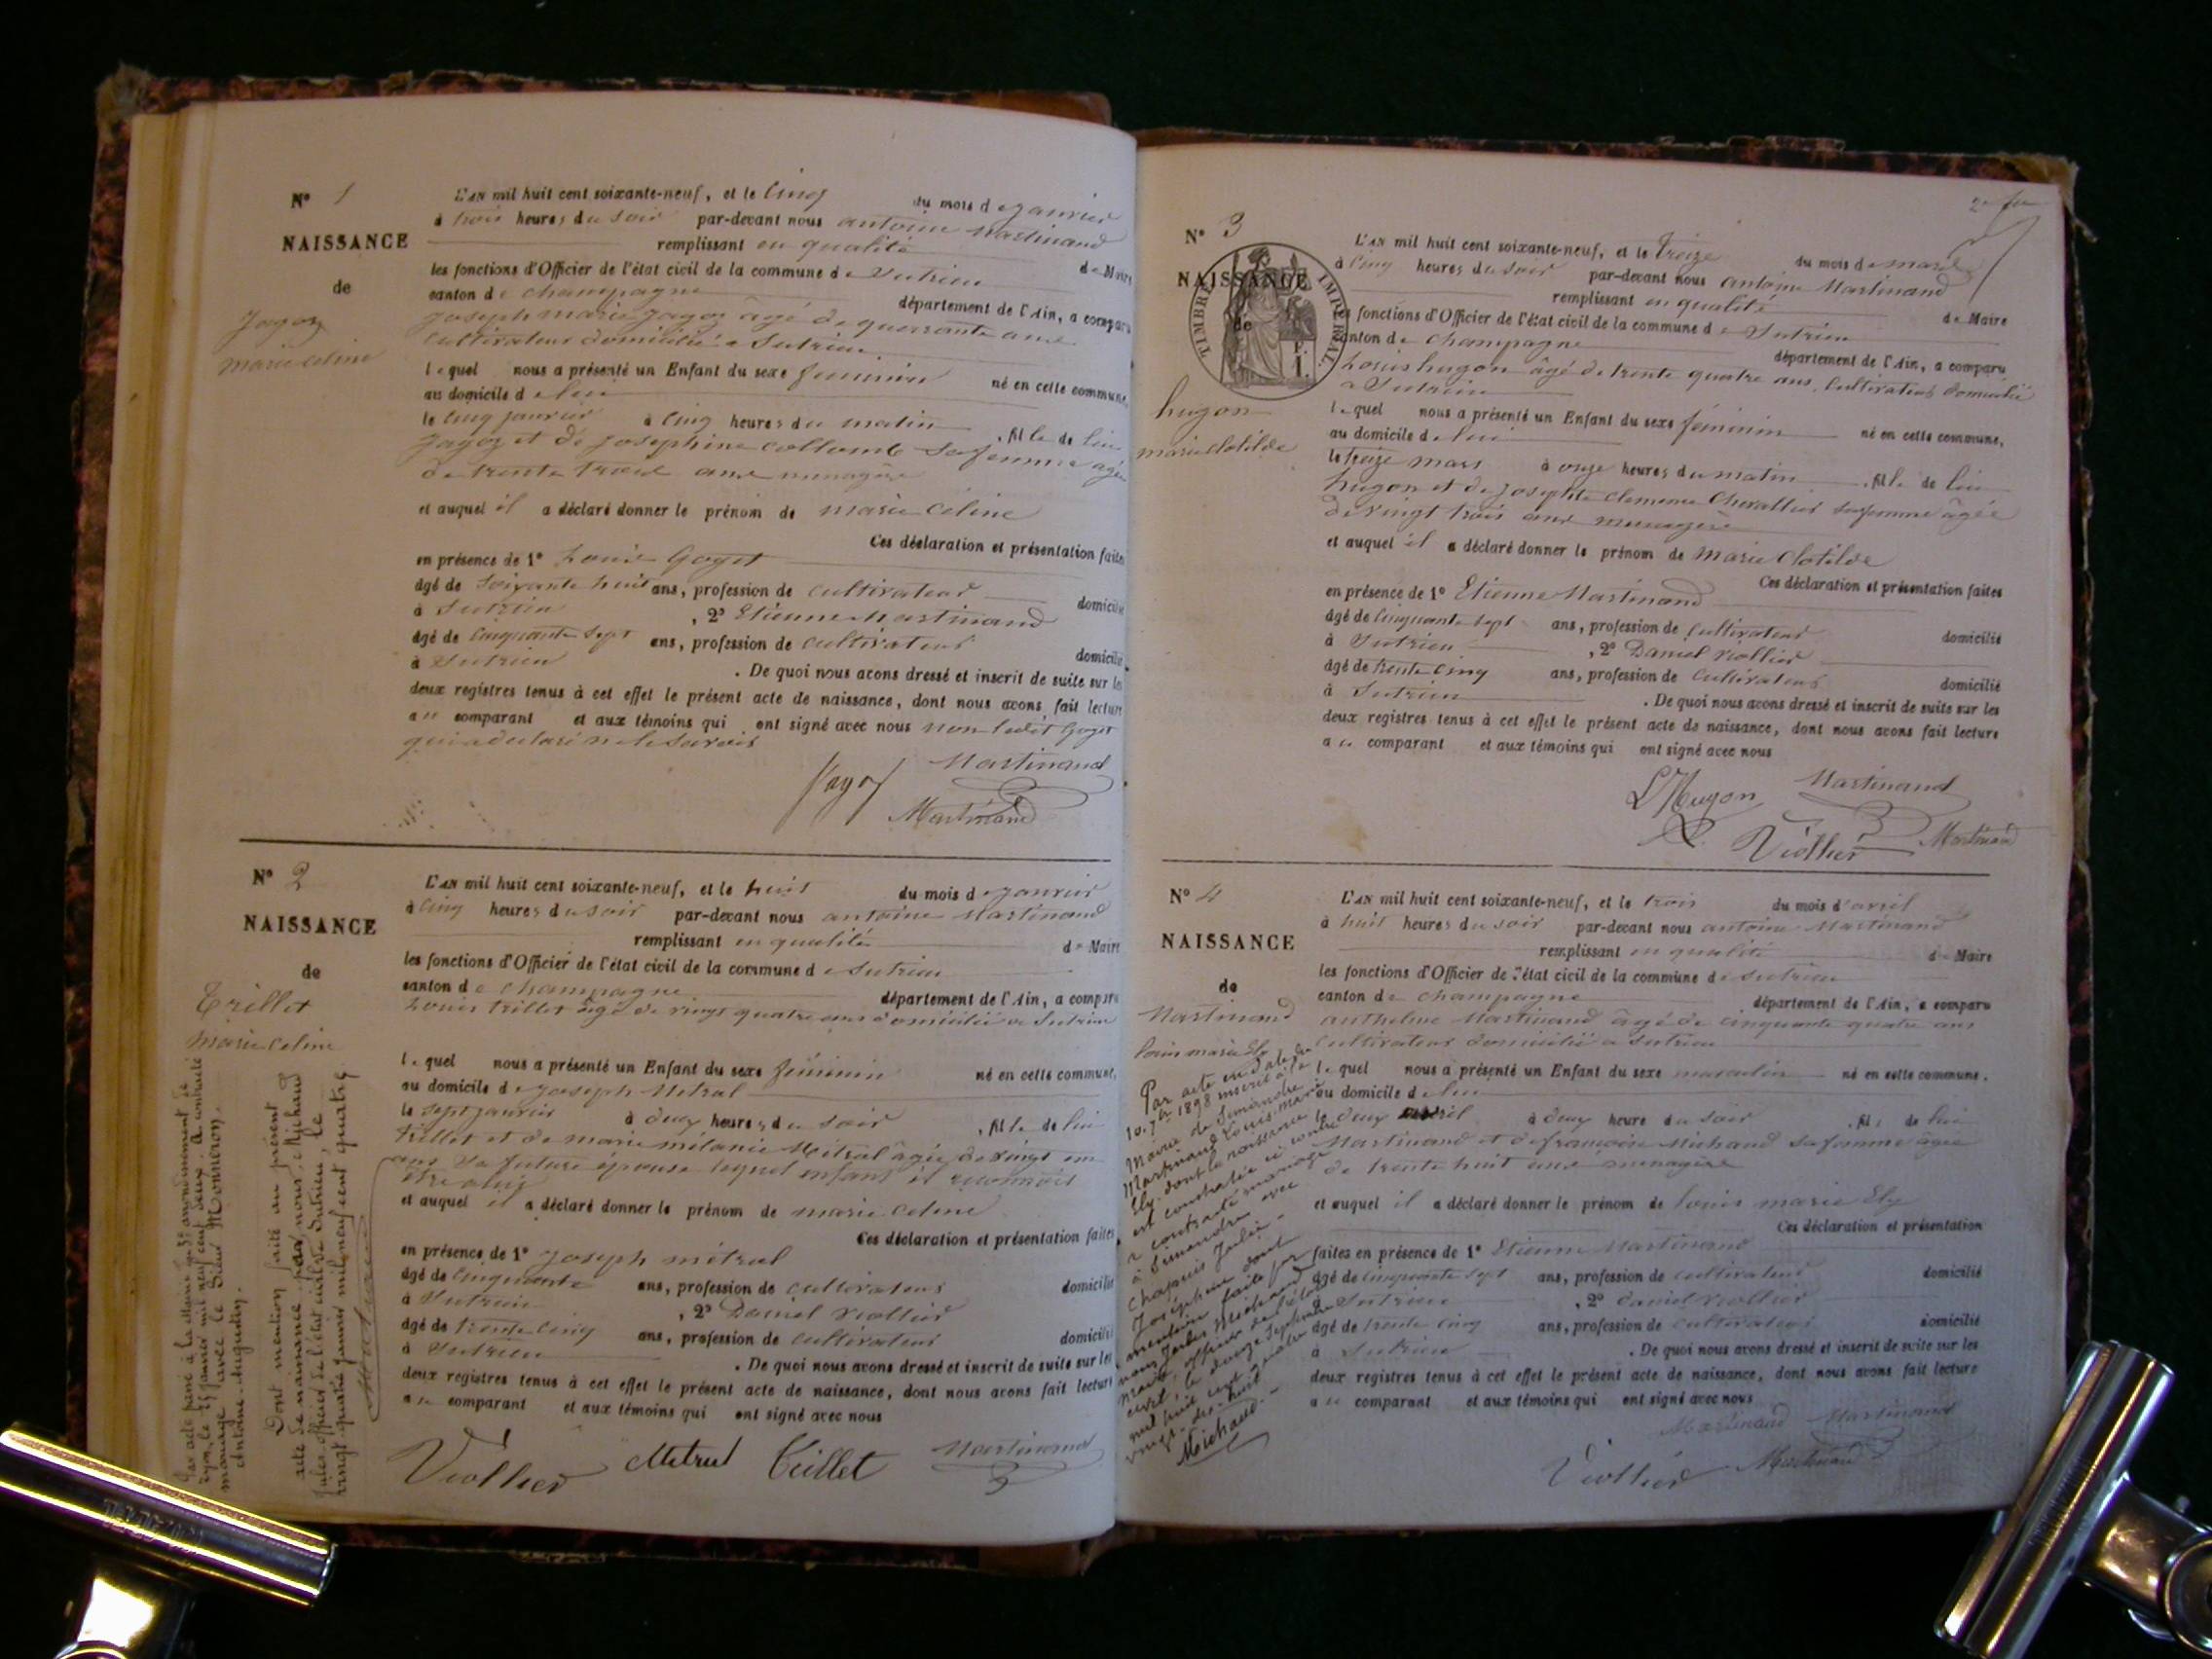 N° 1
NAISSANCE
de
Jagoz
marie celine
L'AN mil huit cent soixante-neuf, et le cinq du mois de janvier
à trois heures du soir par-devant nous antoine Martinand
remplissant en qualité de Maire
les fonctions d'Officier de l'état civil de la commune de Sutrieu
canton de champagne département de l'Ain, a comparu
joseph marie jagoz âgé de quarante ans
cultivateur domicilié a Sutrieu
lequel nous a présenté un Enfant du sexe féminin né en cette commune,
au domicile de lui
le cinq janvier à cinq heures du matin , fille de lui
jagoz et de josephine collomb sa femme agée
de trente trois ans menagère
et auquel il a déclaré donner le prénom de marie céline
Ces déclaration et présentation faites
en présence de 1° Louis Goyet
âgé de soixante huit ans, profession de cultivateur domicilié
à Sutrieu , 2° Etienne Martinand
âgé de cinquante sept ans, profession de cultivateur domicilié
à Sutrieu . De quoi nous avons dressé et inscrit de suite sur les
deux registres tenus à cet effet le présent acte de naissance, dont nous avons fait lecture
au comparant et aux témoins qui ont signé avec nous non ledit Goyet
qui a declaré ne le savoir
Martinand
Martinand
N° 2
NAISSANCE
de
Trillet
marie celine
Par acte passé à la Mairie du 3e arrondissement de
Lyon, le janvier mil neuf cent deux, a contracté
mariage avec le Sieur Monneron
Antoine Augustin.
Dont mention faite au présent
acte de naissance par nous, Michaud
Jules, officier de l'état civil de Sutrieu, le
vingt quatre janvier mil neuf cent quatre
L'AN mil huit cent soixante-neuf, et le huit du mois de janvier
à cinq heures du soir par-devant nous antoine Martinand
remplissant en qualité de Maire
les fonctions d'Officier de l'état civil de la commune de Sutrieu
canton de champagne département de l'Ain, a comparu
Louis trillet âgé de vingt quatre ans domicilié a Sutrieu
lequel nous a présenté un Enfant du sexe féminin né en cette commune,
au domicile de joseph Metral
le sept janvier à deux heures du soir , fille de lui
trillet et de marie mélanie Métral âgée de vingt un
ans sa future épouse lequel enfant il reconnait
être a lui
et auquel il a déclaré donner le prénom de marie celine
Ces déclaration et présentation faites,
en présence de 1° joseph métral
âgé de cinquante ans, profession de cultivateur domicilié
à Sutrieu , 2° Daniel viollier
âgé de trente cinq ans, profession de cultivateur domicilié
à Sutrieu . De quoi nous avons dressé et inscrit de suite sur les
deux registres tenus à cet effet le présent acte de naissance, dont nous avons fait lecture
au comparant et aux témoins qui ont signé avec nous
Viollier Metral Trillet Martinand
N° 3
NAISSANCE
de
TIMBRE IMPERIAL
hugon
marie clotilde
L'AN mil huit cent soixante-neuf, et le treize du mois de mars
à cinq heures du soir par-devant nous antoine Martinand
remplissant en qualité de Maire
les fonctions d'Officier de l'état civil de la commune de Sutrieu
canton de champagne département de l'Ain, a comparu
Louis hugon âgé de trente quatre ans, cultivateur domicilié
a Sutrieu
lequel nous a présenté un Enfant du sexe féminin né en cette commune,
au domicile de lui
le treize mars à onze heures du matin , fille de lui
hugon et de josephte clemence Chevallier sa femme âgée
de vingt trois ans menagère
et auquel il a déclaré donner le prénom de marie Clotilde
Ces déclaration et présentation faites
en présence de 1° Etienne Martinand
âgé de cinquante sept ans, profession de cultivateur domicilié
à Sutrieu , 2° Daniel viollier
âgé de trente cinq ans, profession de cultivateur domicilié
à Sutrieu . De quoi nous avons dressé et inscrit de suite sur les
deux registres tenus à cet effet le présent acte de naissance, dont nous avons fait lecture
au comparant et aux témoins qui ont signé avec nous
L Hugon Martinand
Viollier Martinand
N° 4
NAISSANCE
de
Martinand
louis marie Ely
Par acte en date du
10 7bre 1898 inscrit à la
Mairie de Simandre
Martinand Louis-Marie
Ely dont la naissance
est constatée ci contre
a contracté mariage
à Simandre avec
Chapuis Julie-
Joséphine dont
mention faite par
nous Jules Michaud
maire, officier de l'état
civil, le douze septembre
mil huit cent quatre
vingt-dix-huit-
Michaud
L'AN mil huit cent soixante-neuf, et le trois du mois d'avril
à huit heures du soir par-devant nous antoine Martinand
remplissant en qualité de Maire
les fonctions d'Officier de l'état civil de la commune de Sutrieu
canton de champagne département de l'Ain, a comparu
anthelme Martinand âgé de cinquante quatre ans
cultivateur domicilié a Sutrieu
lequel nous a présenté un Enfant du sexe masculin né en cette commune,
au domicile de lui
le deux avril à deux heure du soir , fils de lui
Martinand et de françoise Michaud sa femme âgée
de trente huit ans menagère
et auquel il a déclaré donner le prénom de louis marie Ely
Ces déclaration et présentation
faites en présence de 1° Etienne Martinand
âgé de cinquante sept ans, profession de cultivateur domicilié
à Sutrieu , 2° daniel viollier
âgé de trente cinq ans, profession de cultivateur domicilié
à Sutrieu . De quoi nous avons dressé et inscrit de suite sur les
deux registres tenus à cet effet le présent acte de naissance, dont nous avons fait lecture
au comparant et aux témoins qui ont signé avec nous
Martinand Martinand
Viollier Martinand